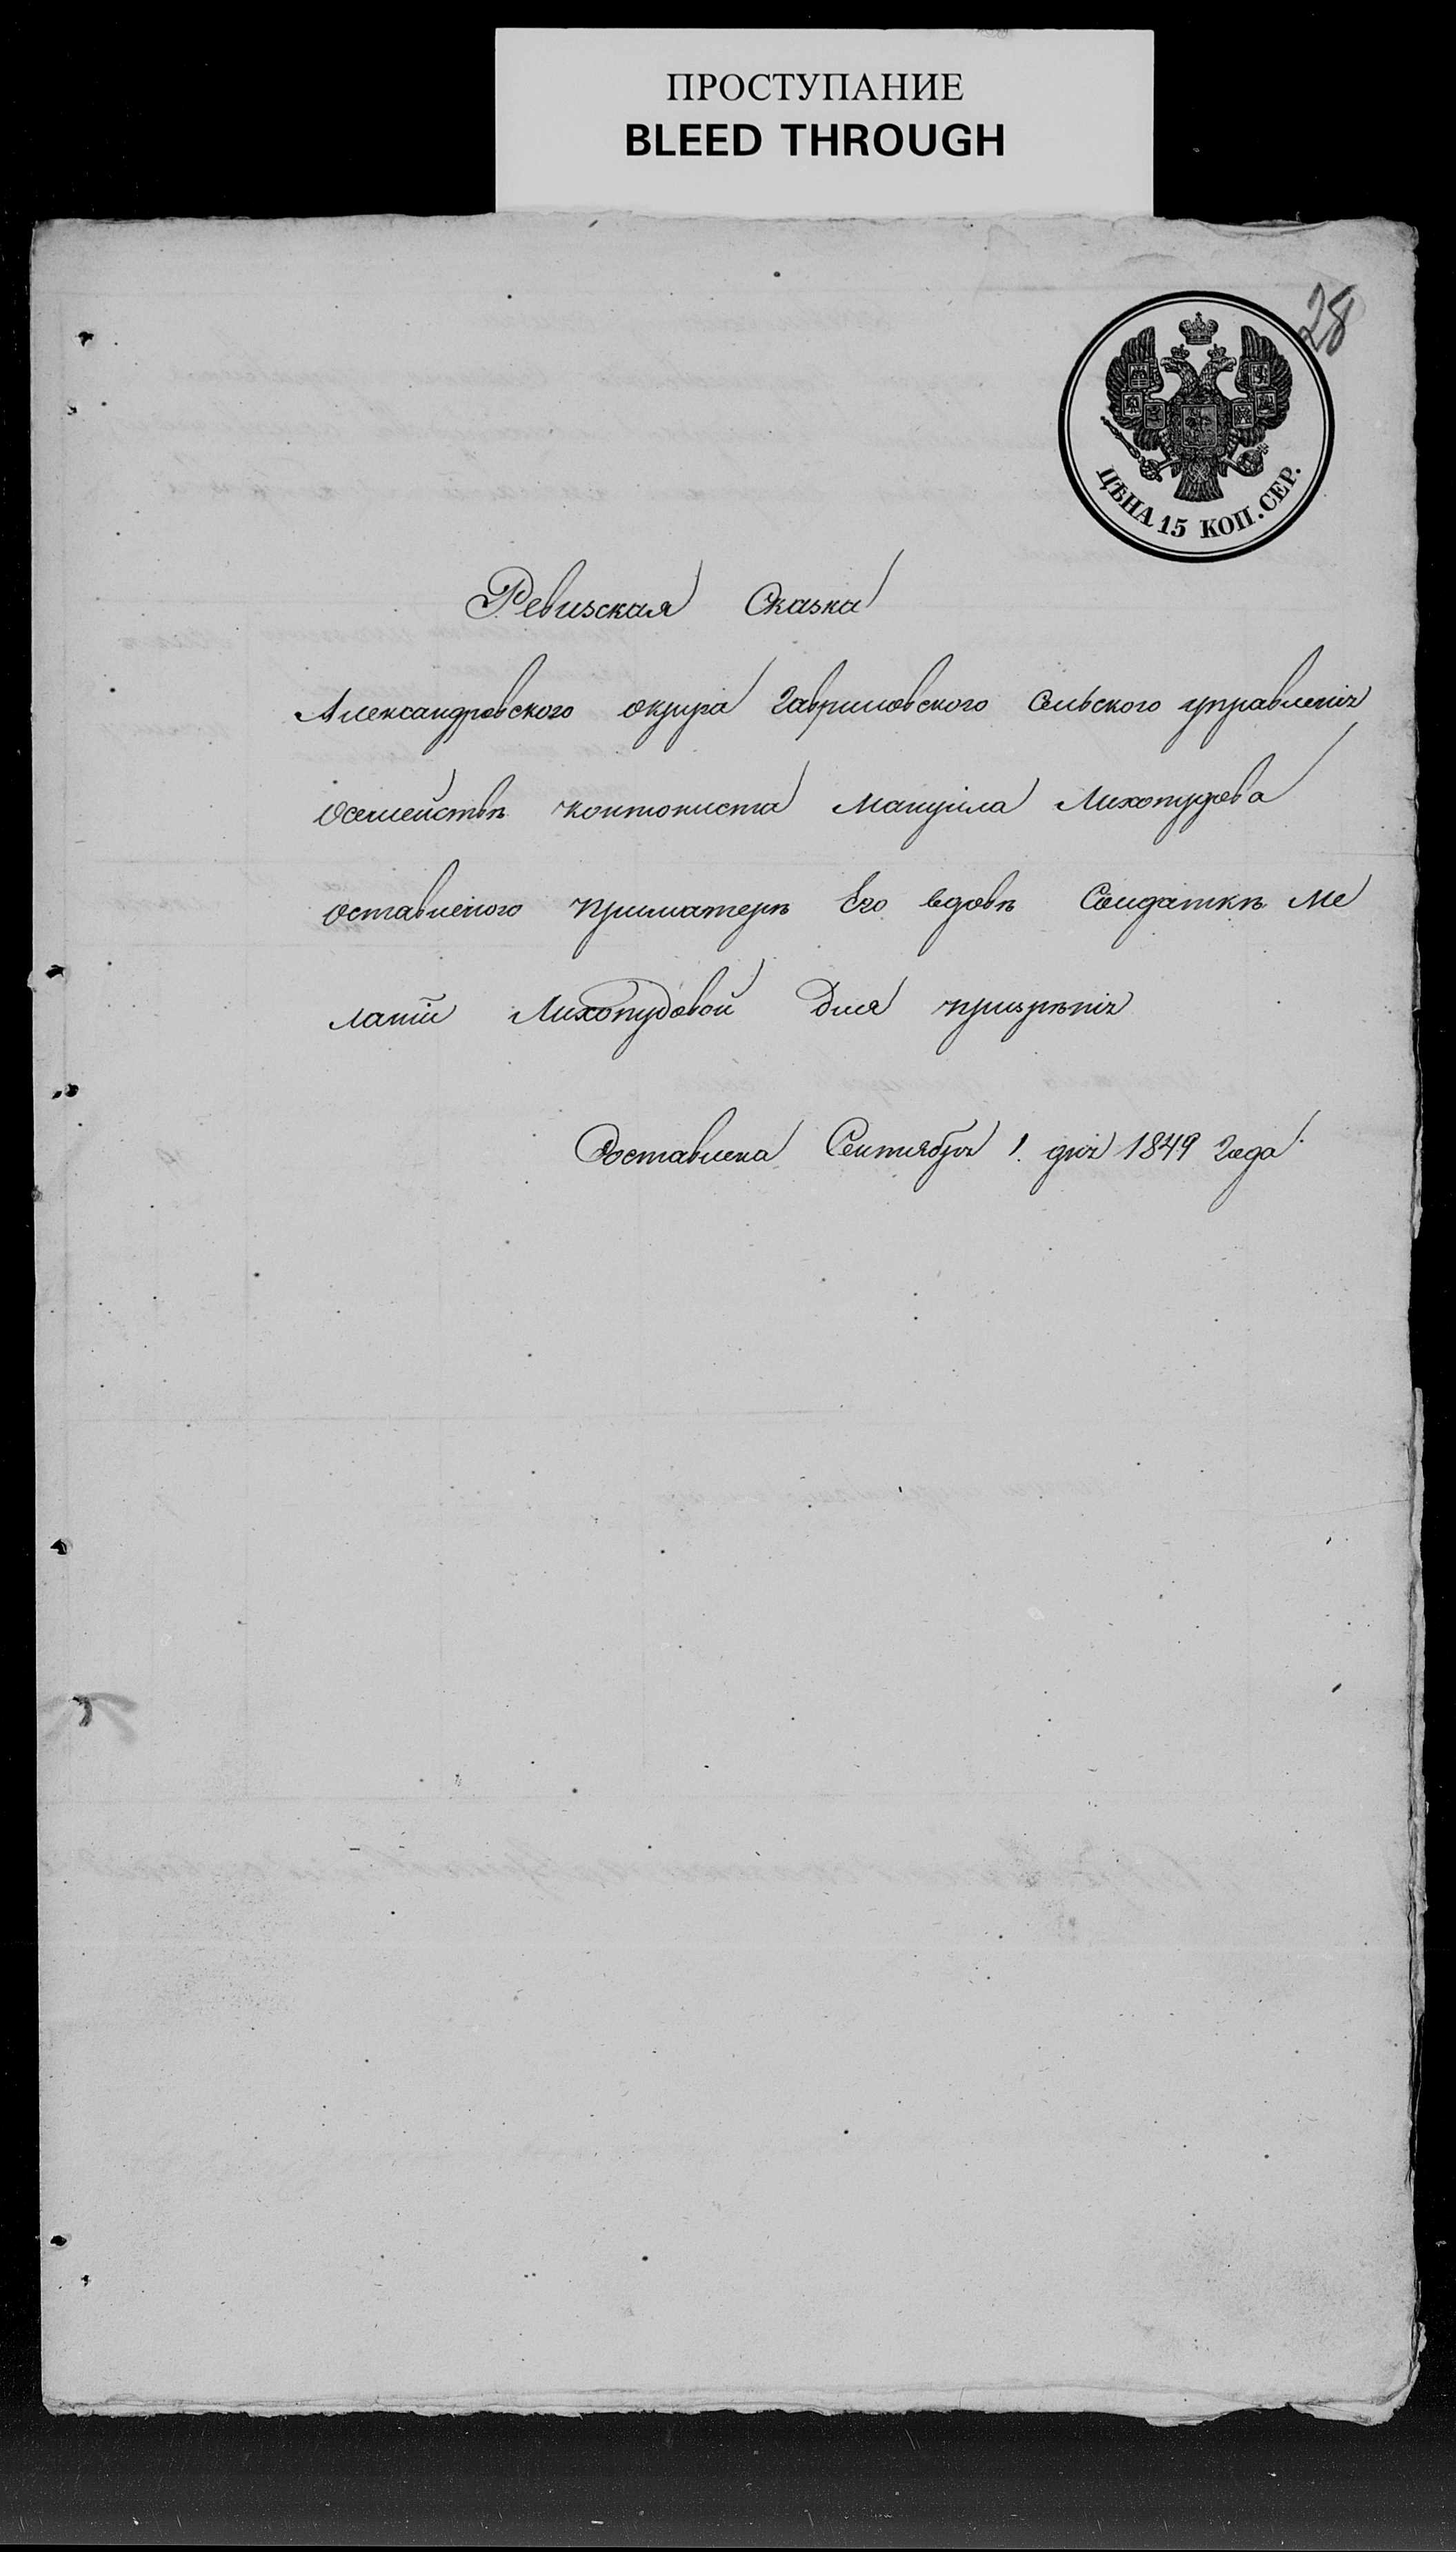 ПРОСТУПАНИЕ
BLEED THROUGH
28
ЦѢНА 15 КОП. СЕР.
Ревизская Сказка
Александровского округа Гавриловского Сельского управленія
Осемействѣ контониста Мануила Лихопудова
оставленого приматерѣ Его вдовѣ Солдаткѣ Ме
ланіи Лихопудовой для призрѣнія
Составлена Сентября 1. дня 1849 Года.